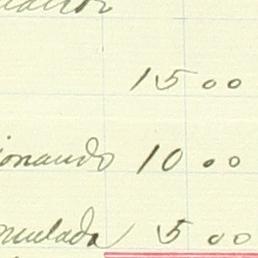 15 00
ionando 10 00
mulada 5 00